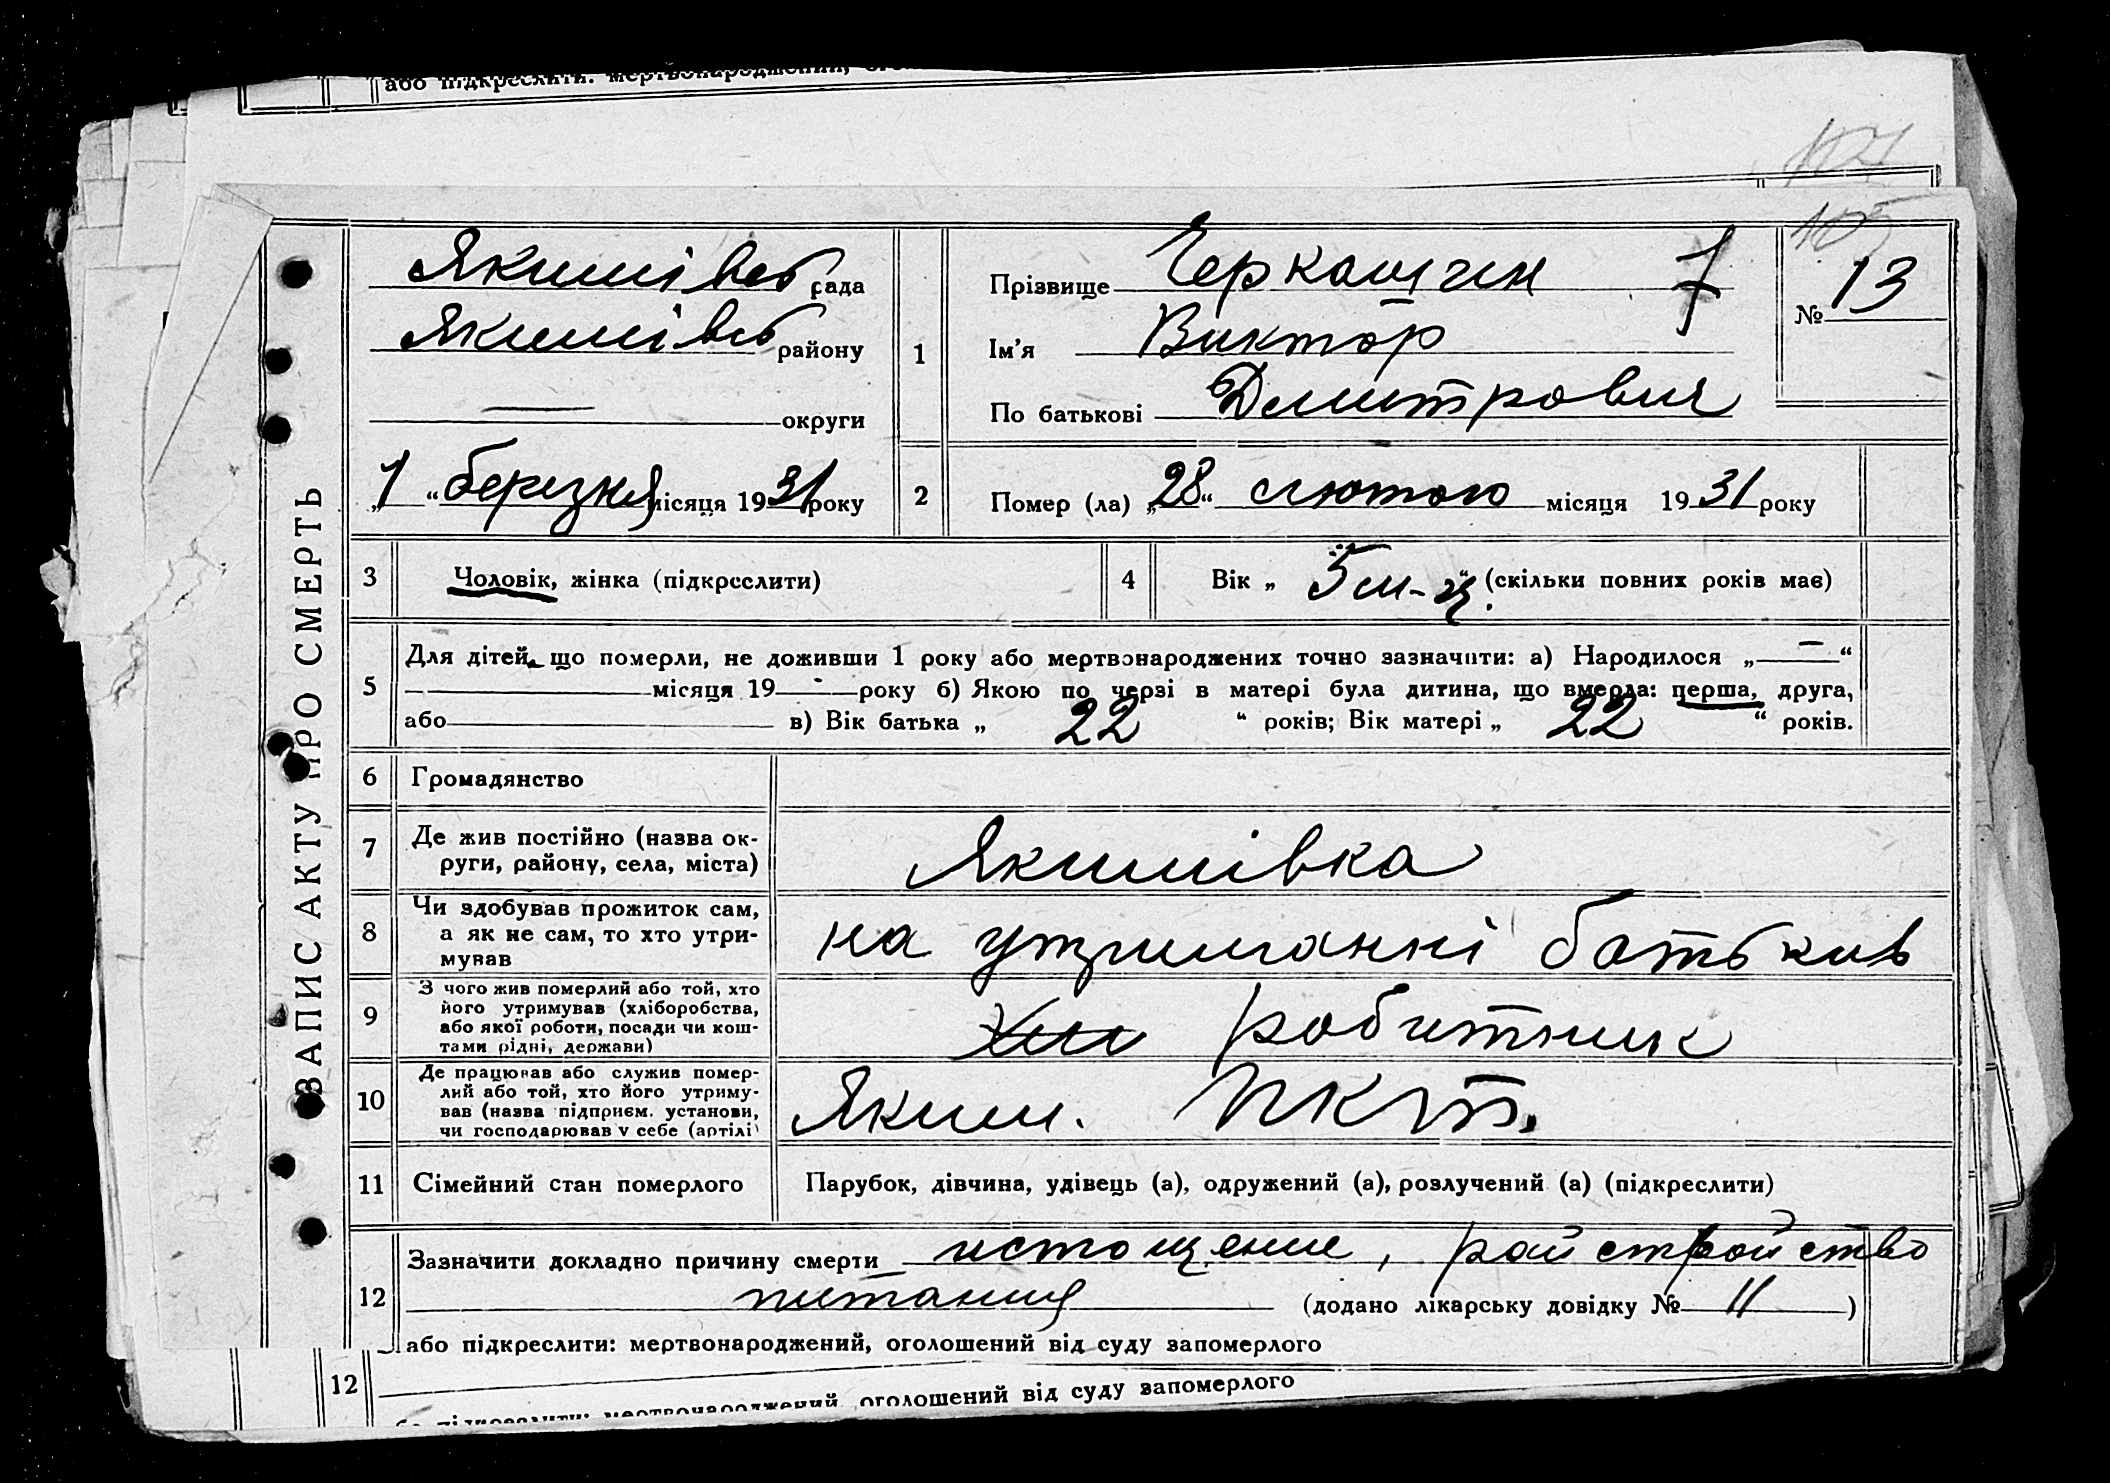 або підкреслити: мертвонароджений,
105
ЗАПИС АКТУ ПРО СМЕРТЬ
Якимівсь рада
Якимівсь району
— округи
„1“ березня місяця 1931 року
1
Прізвище Черкашин
Ім’я Виктор
По батькові Дмитрович
№ 13
2
Помер (ла) „28“ лютого місяця 1931 року
3
Чоловік, жінка (підкреслити)
4
Вік „ 5 м-ц. “ (скільки повних років має)
5
Для дітей, що померли, не доживши 1 року або мертвонароджених точно зазначити: а) Народилося „—“
— місяця 19 - року б) Якою по черзі в матері була дитина, що вмерла: перша, друга,
або в) Вік батька „ 22 “ років; Вік матері „ 22 “ років.
6
Громадянство
7
Де жив постійно (назва ок-
руги, району, села, міста)
Якимівка
8
Чи здобував прожиток сам,
а як не сам, то хто утри-
мував
на утриманні батьков
9
З чого жив померлий або той, хто
його утримував (хліборобства,
або якої роботи, посади чи кош-
тами рідні, держави)
робитник
10
Де працював або служив помер-
лий або той, хто його утриму-
вав (назва підприєм. установи,
чи господарював у себе (артілі)
Яким.
11
Сімейний стан померлого
Парубок, дівчина, удівець (а), одружений (а), розлучений (а) (підкреслити)
12
Зазначити докладно причину смерти истощение, райстройство
питания (додано лікарську довідку № 11)
або підкреслити: мертвонароджений, оголошений від суду запомерлого
12
підкреслити: мертвонароджений оголошений від суду запомерлого